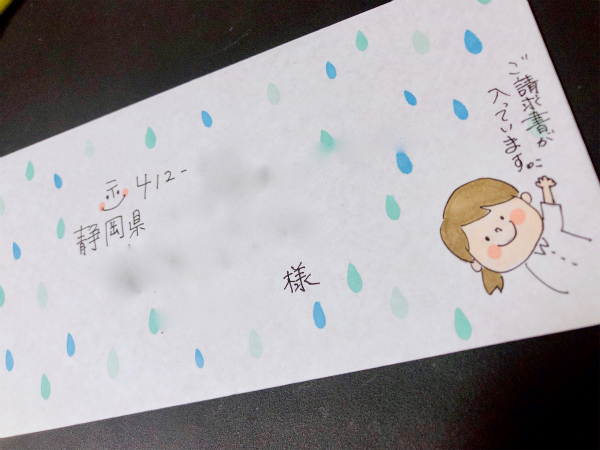 〒412-
静岡県
様
ご請求書が
入っています。